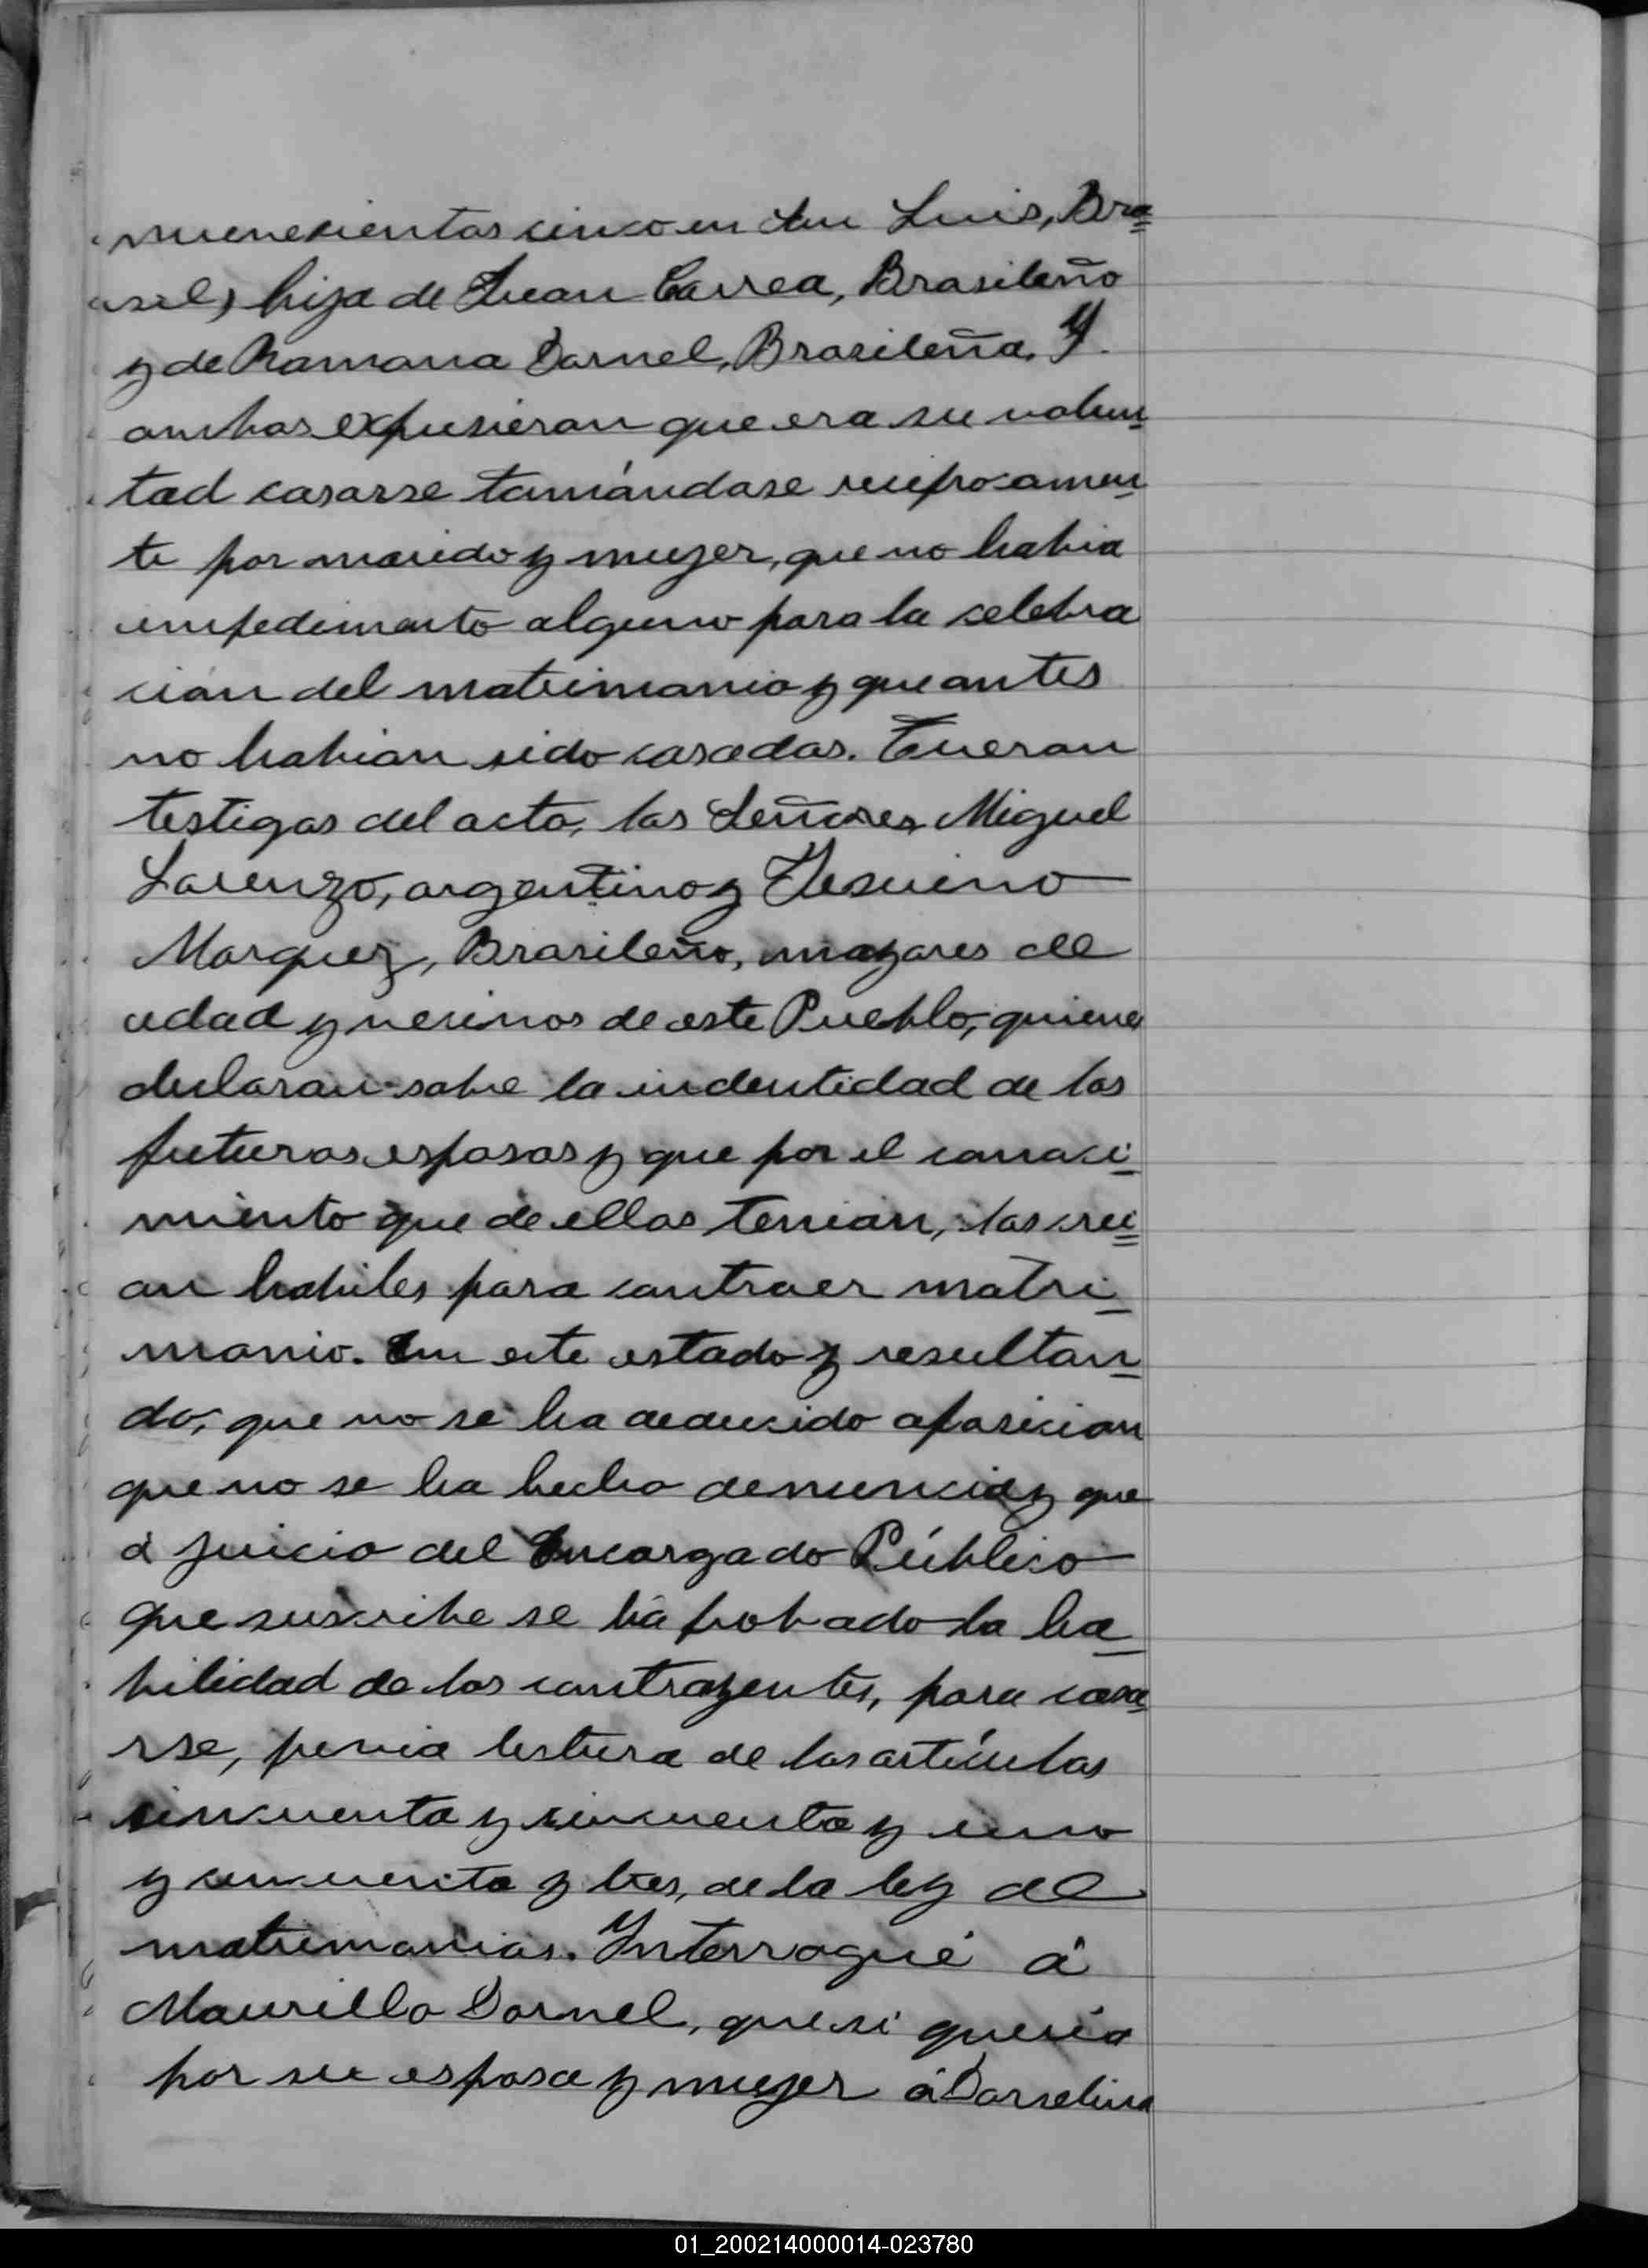 nuevecientos cinco en San Luis, Bra=
sil, hija de Juan Correa, Brasileño
y de Ramona Dornel, Brasileña. Y
ambos expusieron que era su volun-
tad casarse tomándose reciprocamen-
te por marido y mujer, que no habia
impedimento alguno para la celebra
ción del matrimonio y que antes
no habian sido casados. Fueron
testigos del acto, los Señores, Miguel
Lorenzo, argentino y Jesuino
Marquez, Brasileño, mayores de
edad y vecinos de este Pueblo, quienes
declaran sobre la indentidad de los
futuros esposos y que por el conoci-
miento que de ellos tenian, los crei=
an habiles para contraer matri-
monio. En este estado y resultan-
do, que no se ha deducido oposicion
que no se ha hecho denuncia y que
á juicio del Encargado Público
que suscribe se há probado la ha-
bilidad de los contrayentes, para casa-
rse, previa lectura de los artículos
cincuenta y cincuenta y uno
y cincuenta y tres, de la ley de
matrimonios. Interrogué á
Maurillo Dornel, que si queria
por su esposa y mujer á Dorselina
01_200214000014-023780